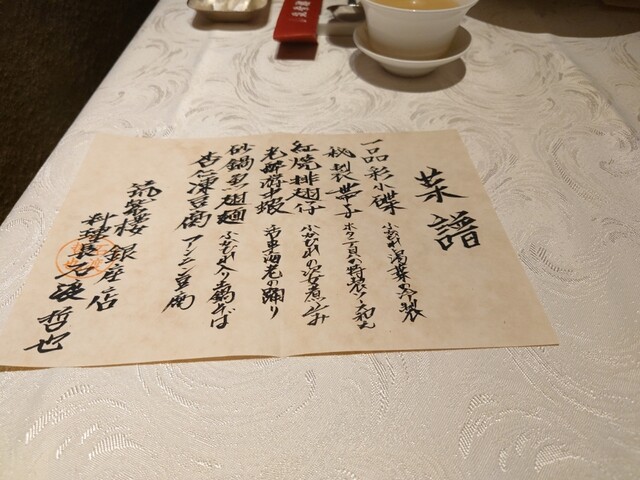 菜譜
一品彩小碟 ふかひれ湯葉の冷製
桃製帯子 ホタテ貝の特製ソース和え
紅焼排翅仔 ふかひれの姿煮込み
老酔游水蝦 活車海老の踊り
砂鍋魚翅麺 ふかひれ入り土鍋そば
杏仁凍豆腐 アンニン豆腐
筑紫樓 銀座店
料理長
哲也